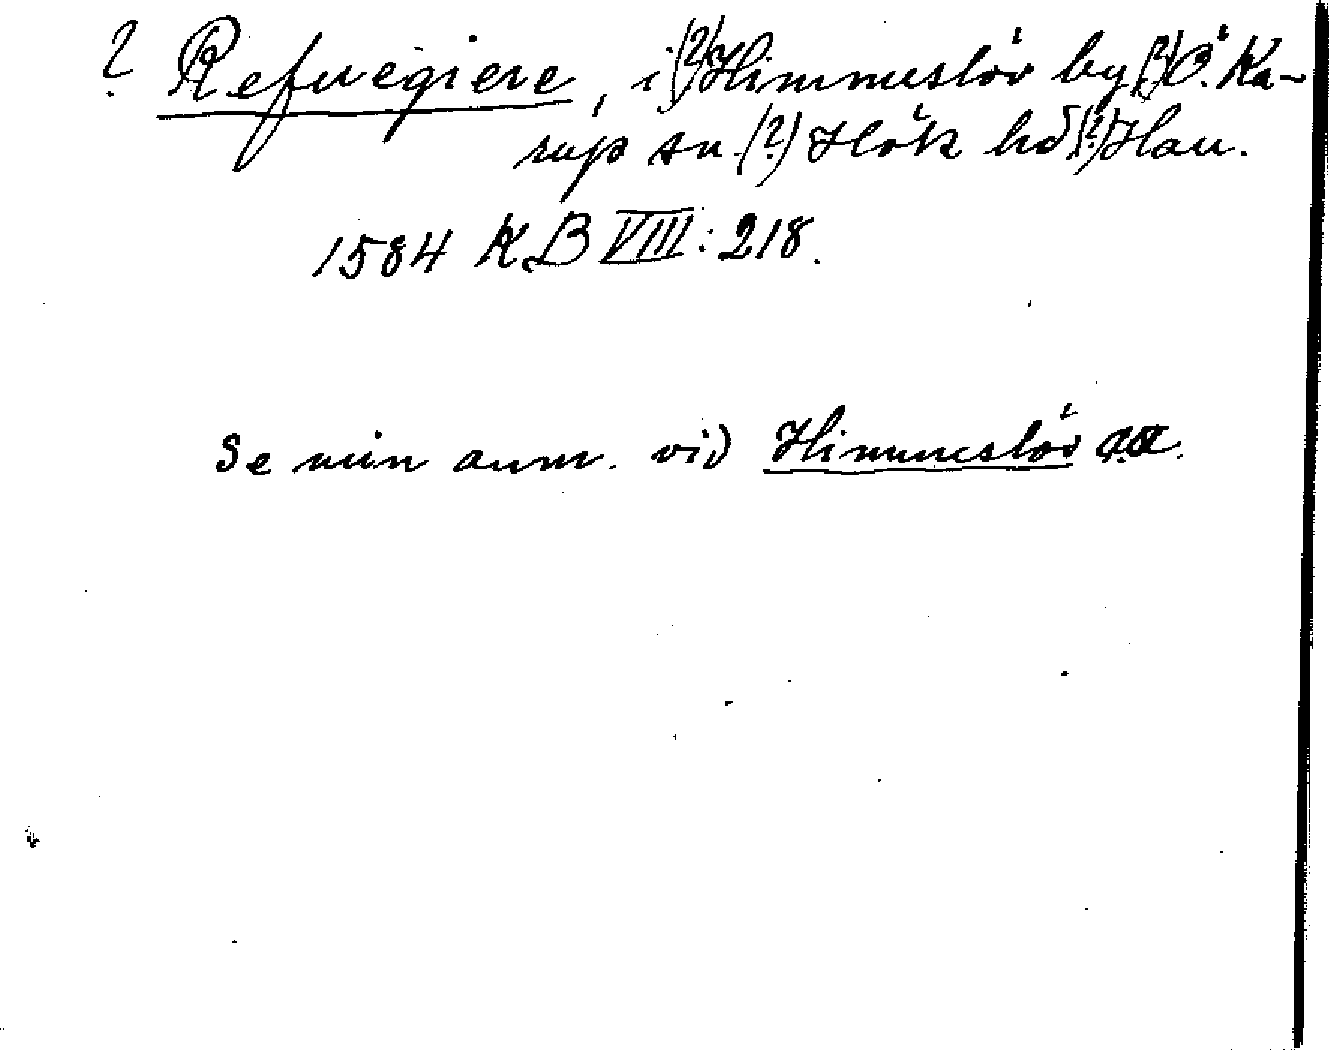 ? Refuegiere, i (?) Himmeslöv by (?) Ö. Ka-
rup sn. (?) Hök hd (?) Hall.
1584 KB VIII: 218.
Se min anm. vid Himmeslöv